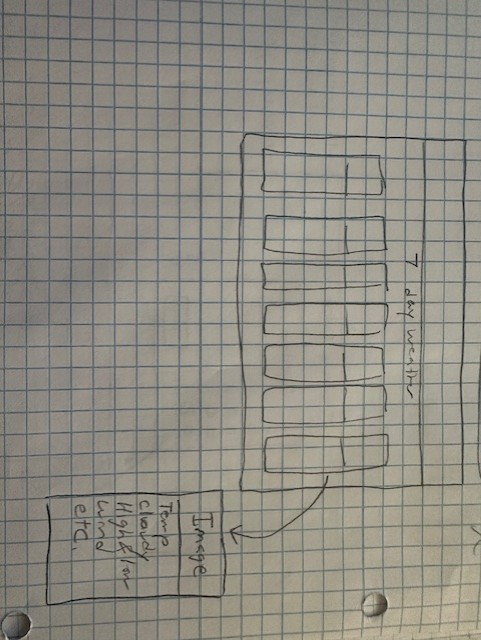 7 day weather
Image
Temp
cloudy
High & low
wind
etc.